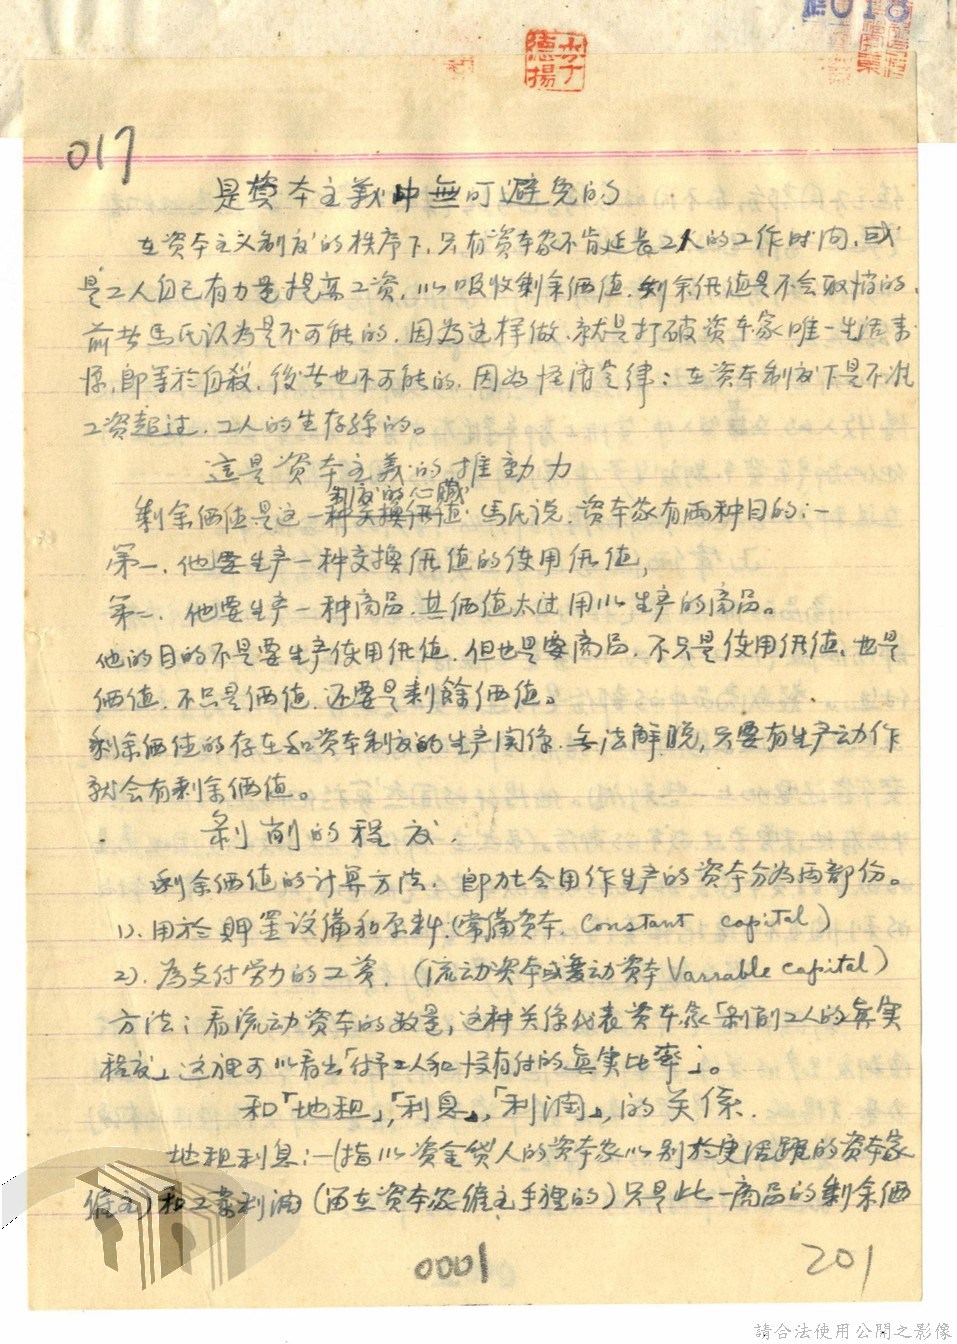 018
李德揚
017
是資本主義中無可避免的
在资本主义制度的秩序下,只有资本家不肯延長工人的工作时间,或
是工人自己有力量提高工资,以吸收剩余価值,剩余価值是不会取消的,
前者馬氏认为是不可能的,因为这样做,就是打破资本家唯一生活来
源,即等於自殺,後者也不可能的,因为經济定律:在资本制度下是不准
工资超过,工人的生存線的。
這是资本主義的推動力
制度的心臟
剩余価值是这一种交换価值 馬氏说,资本家有两种目的:—
第一,他要生产一种交換価值的使用価值,
第二,他要生产一种商品,其価值大过用以生产的商品。
他的目的不是要生产使用価值,但也是要商品,不只是使用価值,也是
価值,不只是価值,还要是剩餘価值。
剩余価值的存在和资本制度的生产関係,无法解脱,只要有生产动作
就会有剩余価值。
剝削的程度.
剩余価值的计算方法,即社会用作生产的资本分为两部份。
1).用於購置设備和原料,(常備资本,Constant capital)
2).為支付労力的工资.(流动资本或変动资本Varrable capital)
方法:看流动资本的数量,这种关係代表资本家「剥削工人的真实
程度」这裡可以看出「付予工人和没有付的真实比率」。
和「地租」,「利息」,「利潤」,的关係.
地租利息:—(指以资金贷人的资本家以别於更活躍的资本家
僱主)和工業利潤(留在资本家僱主手裡的)只是此一商品的剩余価
0001
201
請合法使用公開之影像